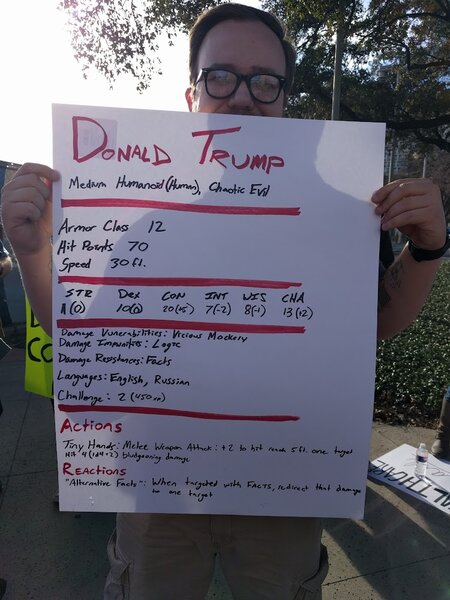 DONALD TRUMP
Medium Humanoid (Human), Chaotic Evil
Armor Class 12
Hit Points 70
Speed 30 ft.
STR DEX CON INT WIS CHA
11 (0) 10 (0) 20 (+5) 7 (-2) 8 (-1) 13 (+2)
Damage Vunerabilities: Vicious Mockery
Damage Immunities: Logic
Damage Resistances: Facts
Languages: English, Russian
Challenge: 2 (450 xp)
Actions
Tiny Hands: Melee Weapon Attack: +2 to hit reach 5 ft. one target
Hit 4 (1d4+2) bludgeoning damage
Reactions
"Alternative Facts": When targeted with FACTS, redirect that damage
to one target